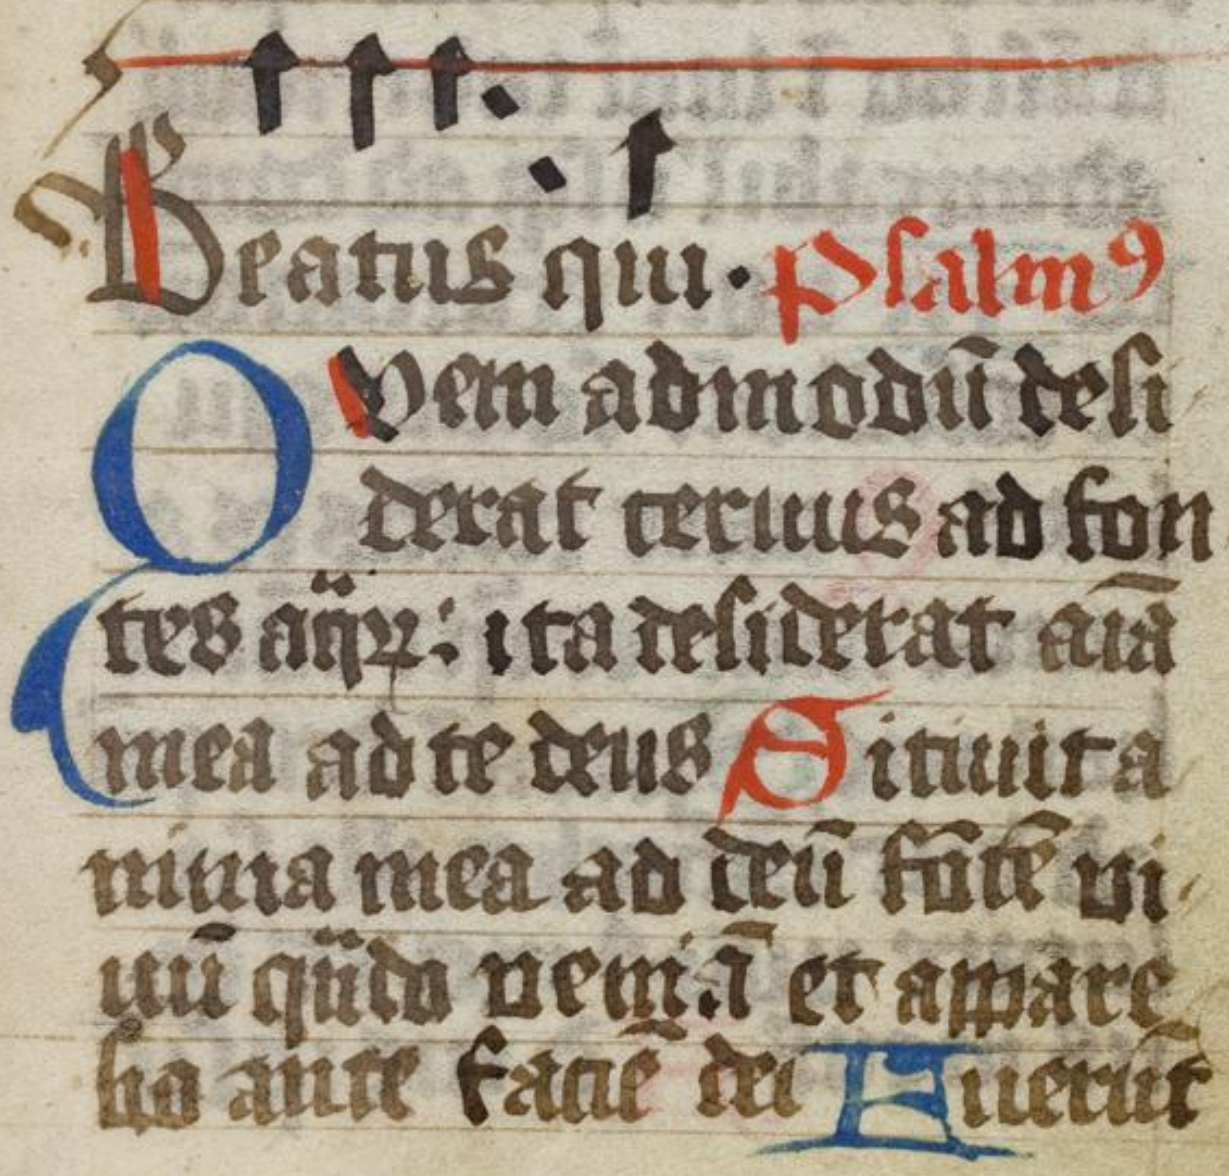 Beatus qui · Psalmꝰ
Qvem admodū desi
derat ceruus ad fon
tes aq̈ꝝ: ita desiderat aīa
mea ad te deus Sitiuit a
nima mea ad deū fōtē ui
uū qn̄do veniā et appare
bo ante faciē dei Fuerūt